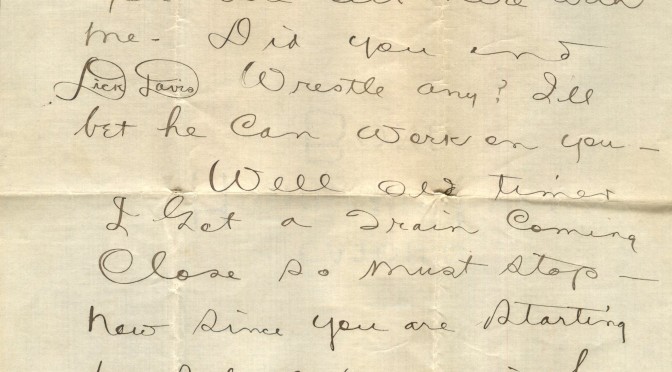 me - Did you and
Dick Davis Wrestle any? I'll
bet he Can work on you -
Well old timer
I Got a Train Coming
Close so must stop -
now since you are starting